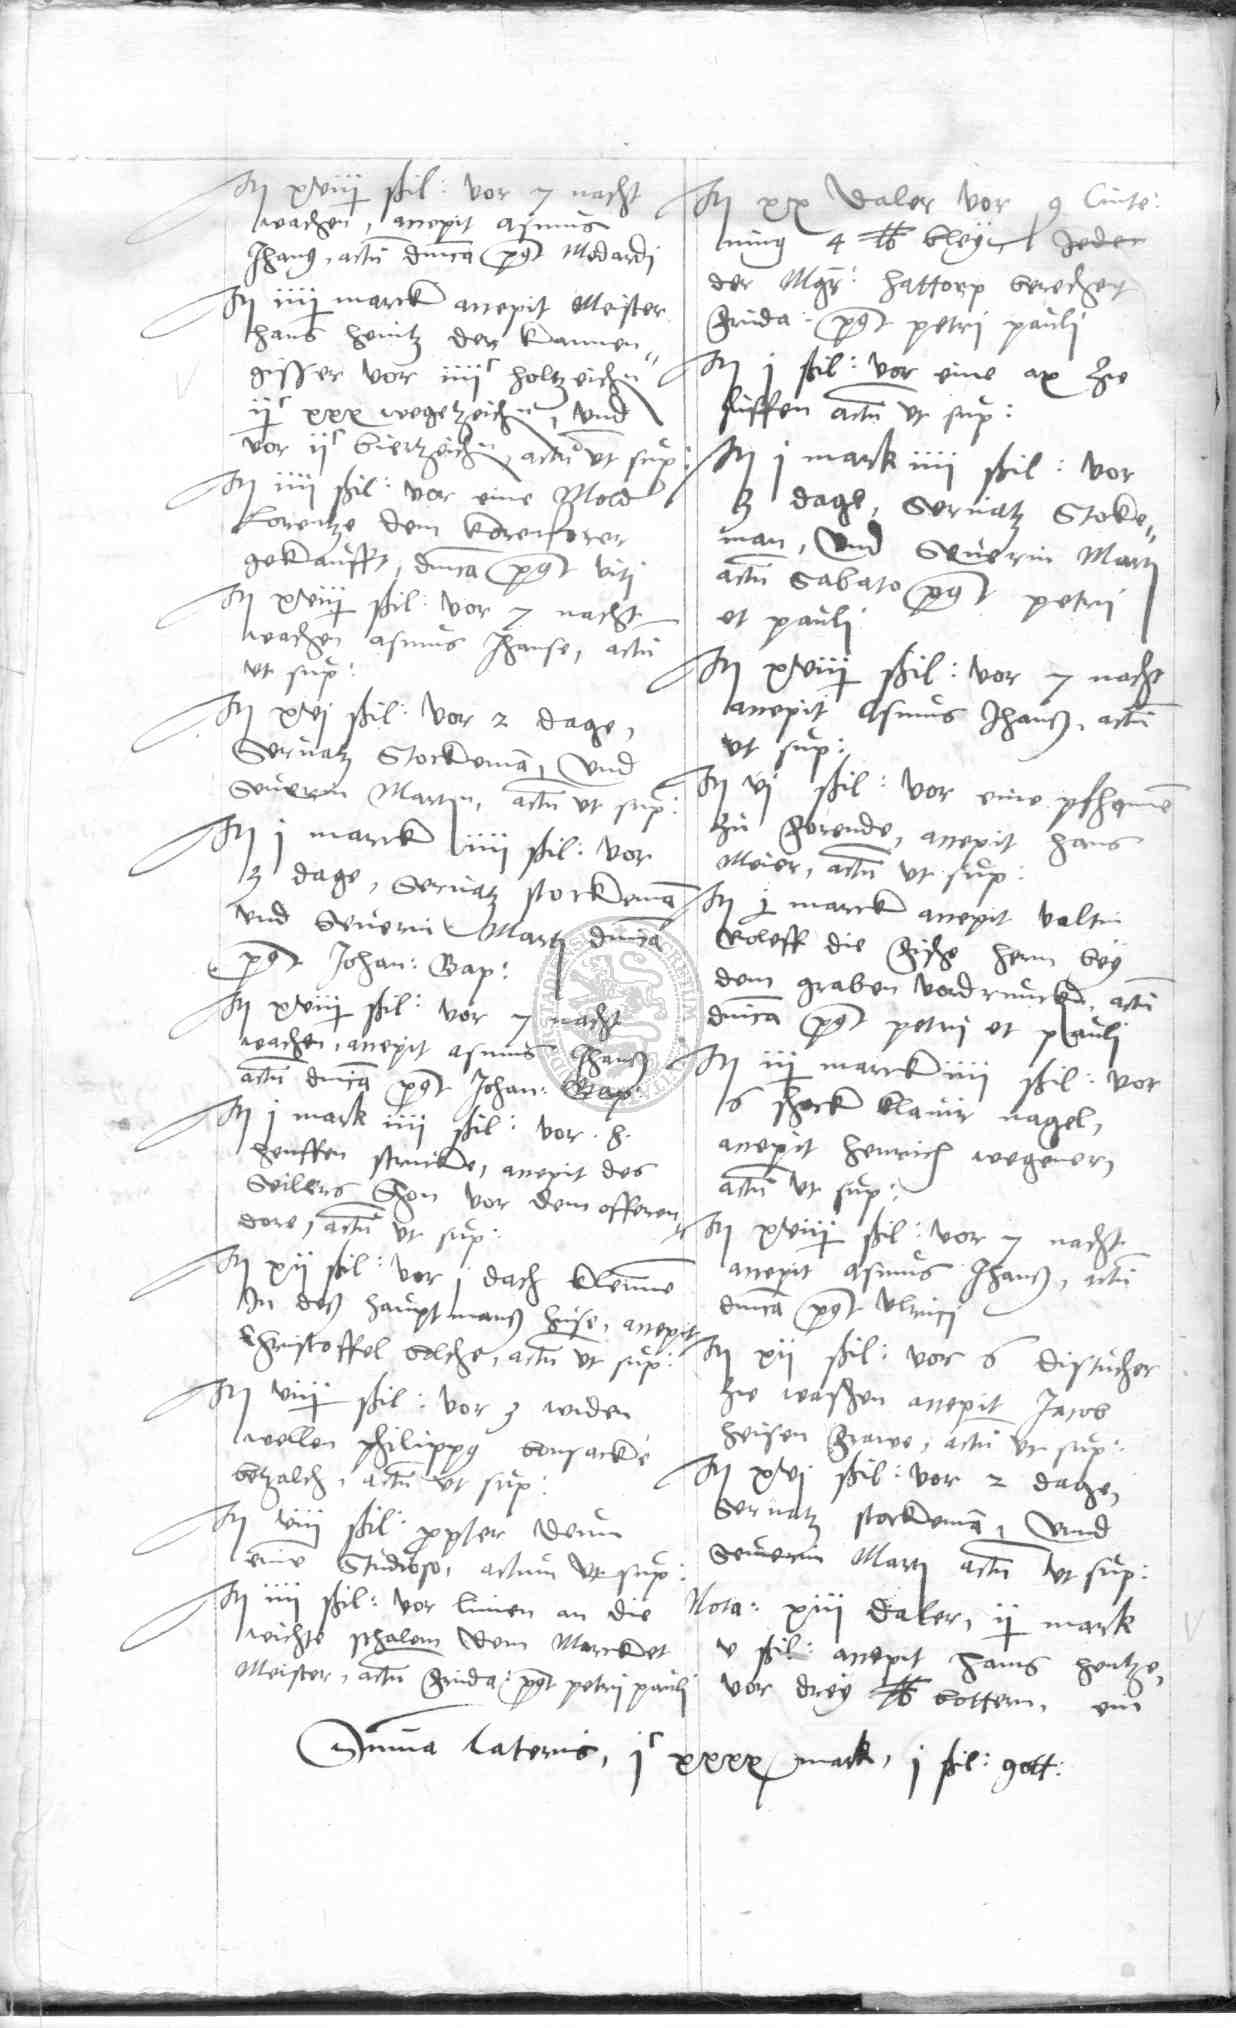 It xviij ßil: vor 7 nacht
wachen, accepit asmus
Jhans, actu dnica post Medardi
It iiij marck accepit Meister
hans heintz der kannen=
gisser vor iiijc holtzeichn
ijc xxx wegetzeichn, vnd
vor ijc biertzeichn, actu vt sup:
It iiij ßil: vor eine Mold
Lorentze dem korenforer
gekaufft, dnica post viti
It xviij ßil: vor 7 nacht
wachen asmus Jhanse, actu
vt sup:
It xvj ßil: vor 2 dage,
Seruatz Stockema, vnd
Seuerin Martin, actu vt sup:
It j marck iiij ßil: vor
3 dage, Seruatz stockema
vnd Seuerin Marti dnica
post Johan: Bap:
It xviij ßil: vor 7 nacht
wachen, accepit asmus Jhans
actu dnica post Johan: Bap:
It j mark iiij ßil: vor 8
henffen stricke, accepit des
Seilers Shon vor dem offeren
dore, actu vt sup:
It xij ßil: vor j dach klemme
In des hauptmans huse, accepit
Christoffel bolche, actu vt sup:
It viij ßil: vor 3 widen
wellen philippus bonsacke
betzalch, actu vt sup:
It viij ßil: ppter deum
eine Studioso, actum vt sup:
It iiij ßil: vor linen an die
wichte schalem dem Marcket
Meister, actu post petri pauli
It xx Daler vor 9 Cinte:
ning 4 lb bley Jeder
der Mgr: hattorp berechent
post petri pauli
It j ßil: vor eine ax zue
sliffen actu vt sup:
It j mark iiij ßil: vor
3 dage, Seruatz Stoke=
man, vnd Seuerin Marti
actu Sabato post petri
et pauli
It xviij ßil: vor 7 nacht
accepit Asmus Jhans, actu
vt sup:
It vj ßil: vor eine
zu forende, accepit hans
Meier, actu vt sup:
It j marck accepit valtin
Roleff die fische hern bey
dem graben actu
dnica post petri et pauli
It iij marck iiij ßil: vor
6 schock klamir nagel,
accepit henrich wegener,
actu vt sup:
It xviij ßil: vor 7 nacht
accepit asmus Jhans, actu
dnica post vlrici
It xij ßil: vor 6 distucher
zue waßen accepit Jacob
heisen frawe, actu vt sup:
It xvj ßil: vor 2 dage,
Seruatz stockema, vnnd
Seuerin Marti actu vt sup:
Nota: xiij daler, ij mark
v ßil: accepit hans hentze,
vor drey lb bottern, ein
Suma lateris, jc xxxx mark, j ßil: gott: